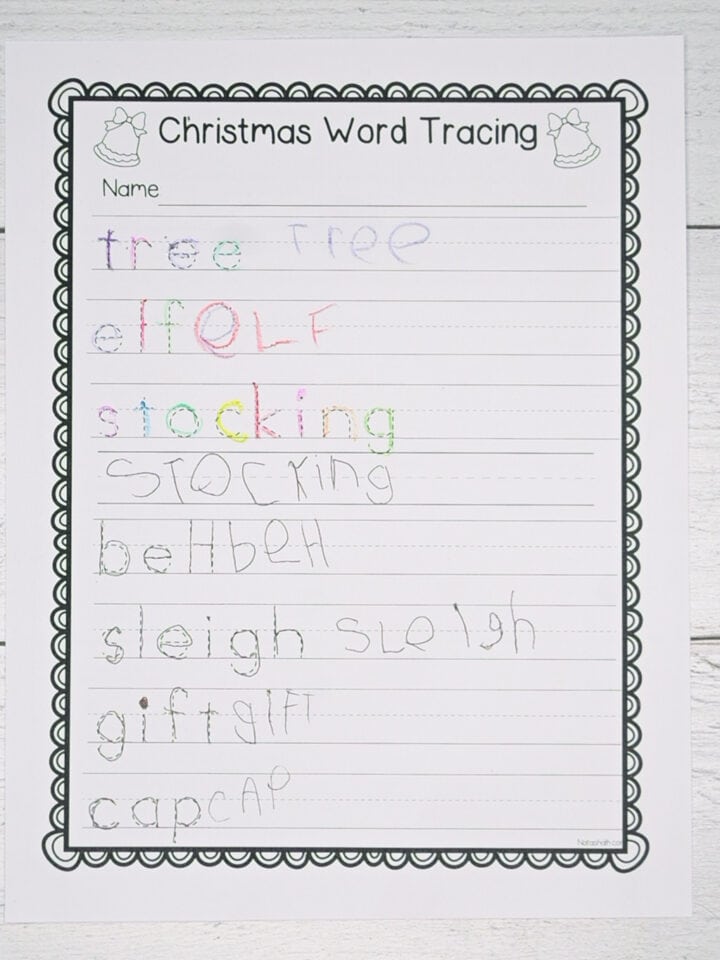 Christmas Word Tracing
Name
tree Tree
elf eLF
stocking
STOCKing
beH beH
sleigh SLeIgh
gift gIFT
cap cAP